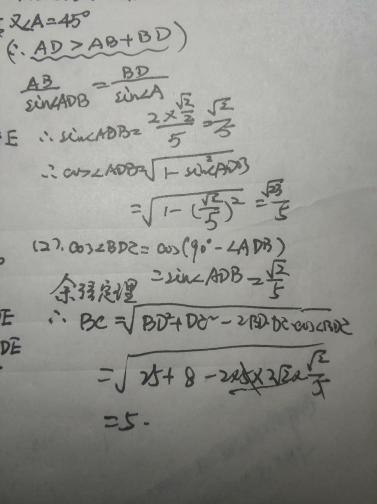 又∠A=45°
(∵ AD > AB+BD)
AB/sin∠ADB = BD/sin∠A
E ∴ sin∠ADB = (2×√2/2)/5 = √2/5
∴ cos∠ADB=√(1-sin²ADB)
=√(1-(√2/5)²) = √23/5
(2). cos∠BDC=cos(90°-∠ADB)
余弦定理 =sin∠ADB=√2/5
E ∴ BC=√(BD²+DC²-2BD·DC·cos∠BDC)
DE
=√(25+8-2×5×2√2×√2/5)
=5.